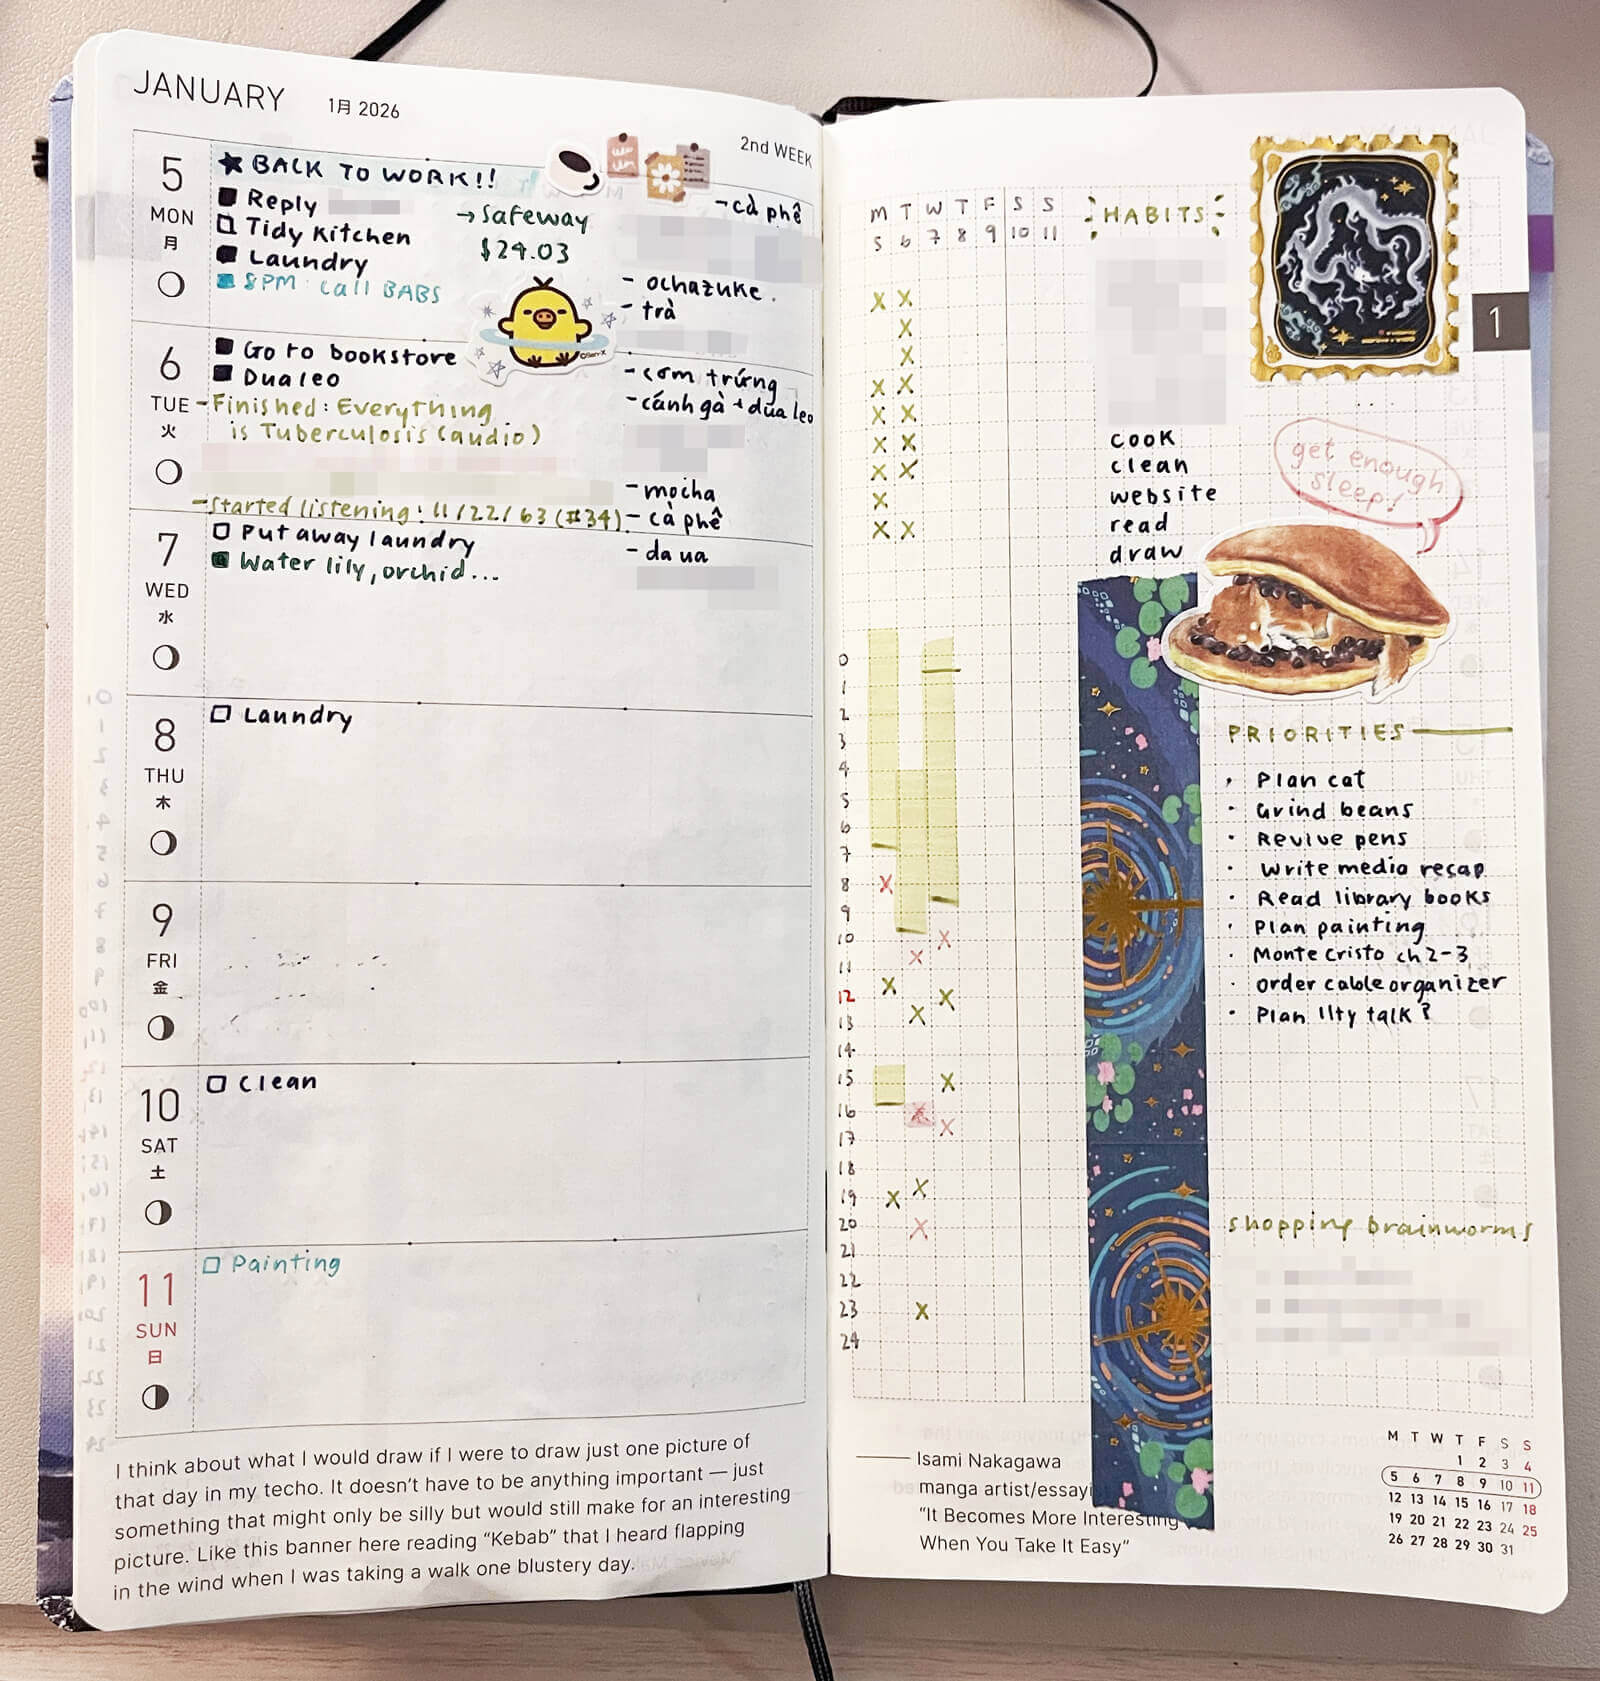 JANUARY 1月 2026
2nd WEEK
5
MON
月
★ BACK TO WORK!!
Reply
Tidy Kitchen
Laundry
8PM: call BABS
→ Safeway
$24.03
- cà phê
- ochazuke.
- trà
6
TUE
火
Go to bookstore
Dualeo
- Finished: Everything
is Tuberculosis (audio)
- Started listening: 11/22/63 (#34)
©San-X
- cơm trứng
- cánh gà + dưa leo
- mocha
- cà phê
7
WED
水
Put away laundry
Water lily, orchid...
- da ua
8
THU
木
Laundry
9
FRI
金
10
SAT
土
Clean
11
SUN
日
Painting
I think about what I would draw if I were to draw just one picture of
that day in my techo. It doesn't have to be anything important — just
something that might only be silly but would still make for an interesting
picture. Like this banner here reading “Kebab” that I heard flapping
in the wind when I was taking a walk one blustery day.
M T W T F S S
5 6 7 8 9 10 11
HABITS
cook
clean
website
read
draw
1
get enough
sleep!
0
1
2
3
4
5
6
7
8
9
10
11
12
13
14
15
16
17
18
19
20
21
22
23
24
PRIORITIES
· Plan cat
· Grind beans
· Revive pens
· Write media recap
· Read library books
· Plan painting
· Monte Cristo ch 2-3
· order cable organizer
· Plan 11ty talk?
shopping brainworms
Isami Nakagawa
manga artist/essayi
“It Becomes More Interesting
When You Take It Easy”
M T W T F S S
1 2 3 4
5 6 7 8 9 10 11
12 13 14 15 16 17 18
19 20 21 22 23 24 25
26 27 28 29 30 31